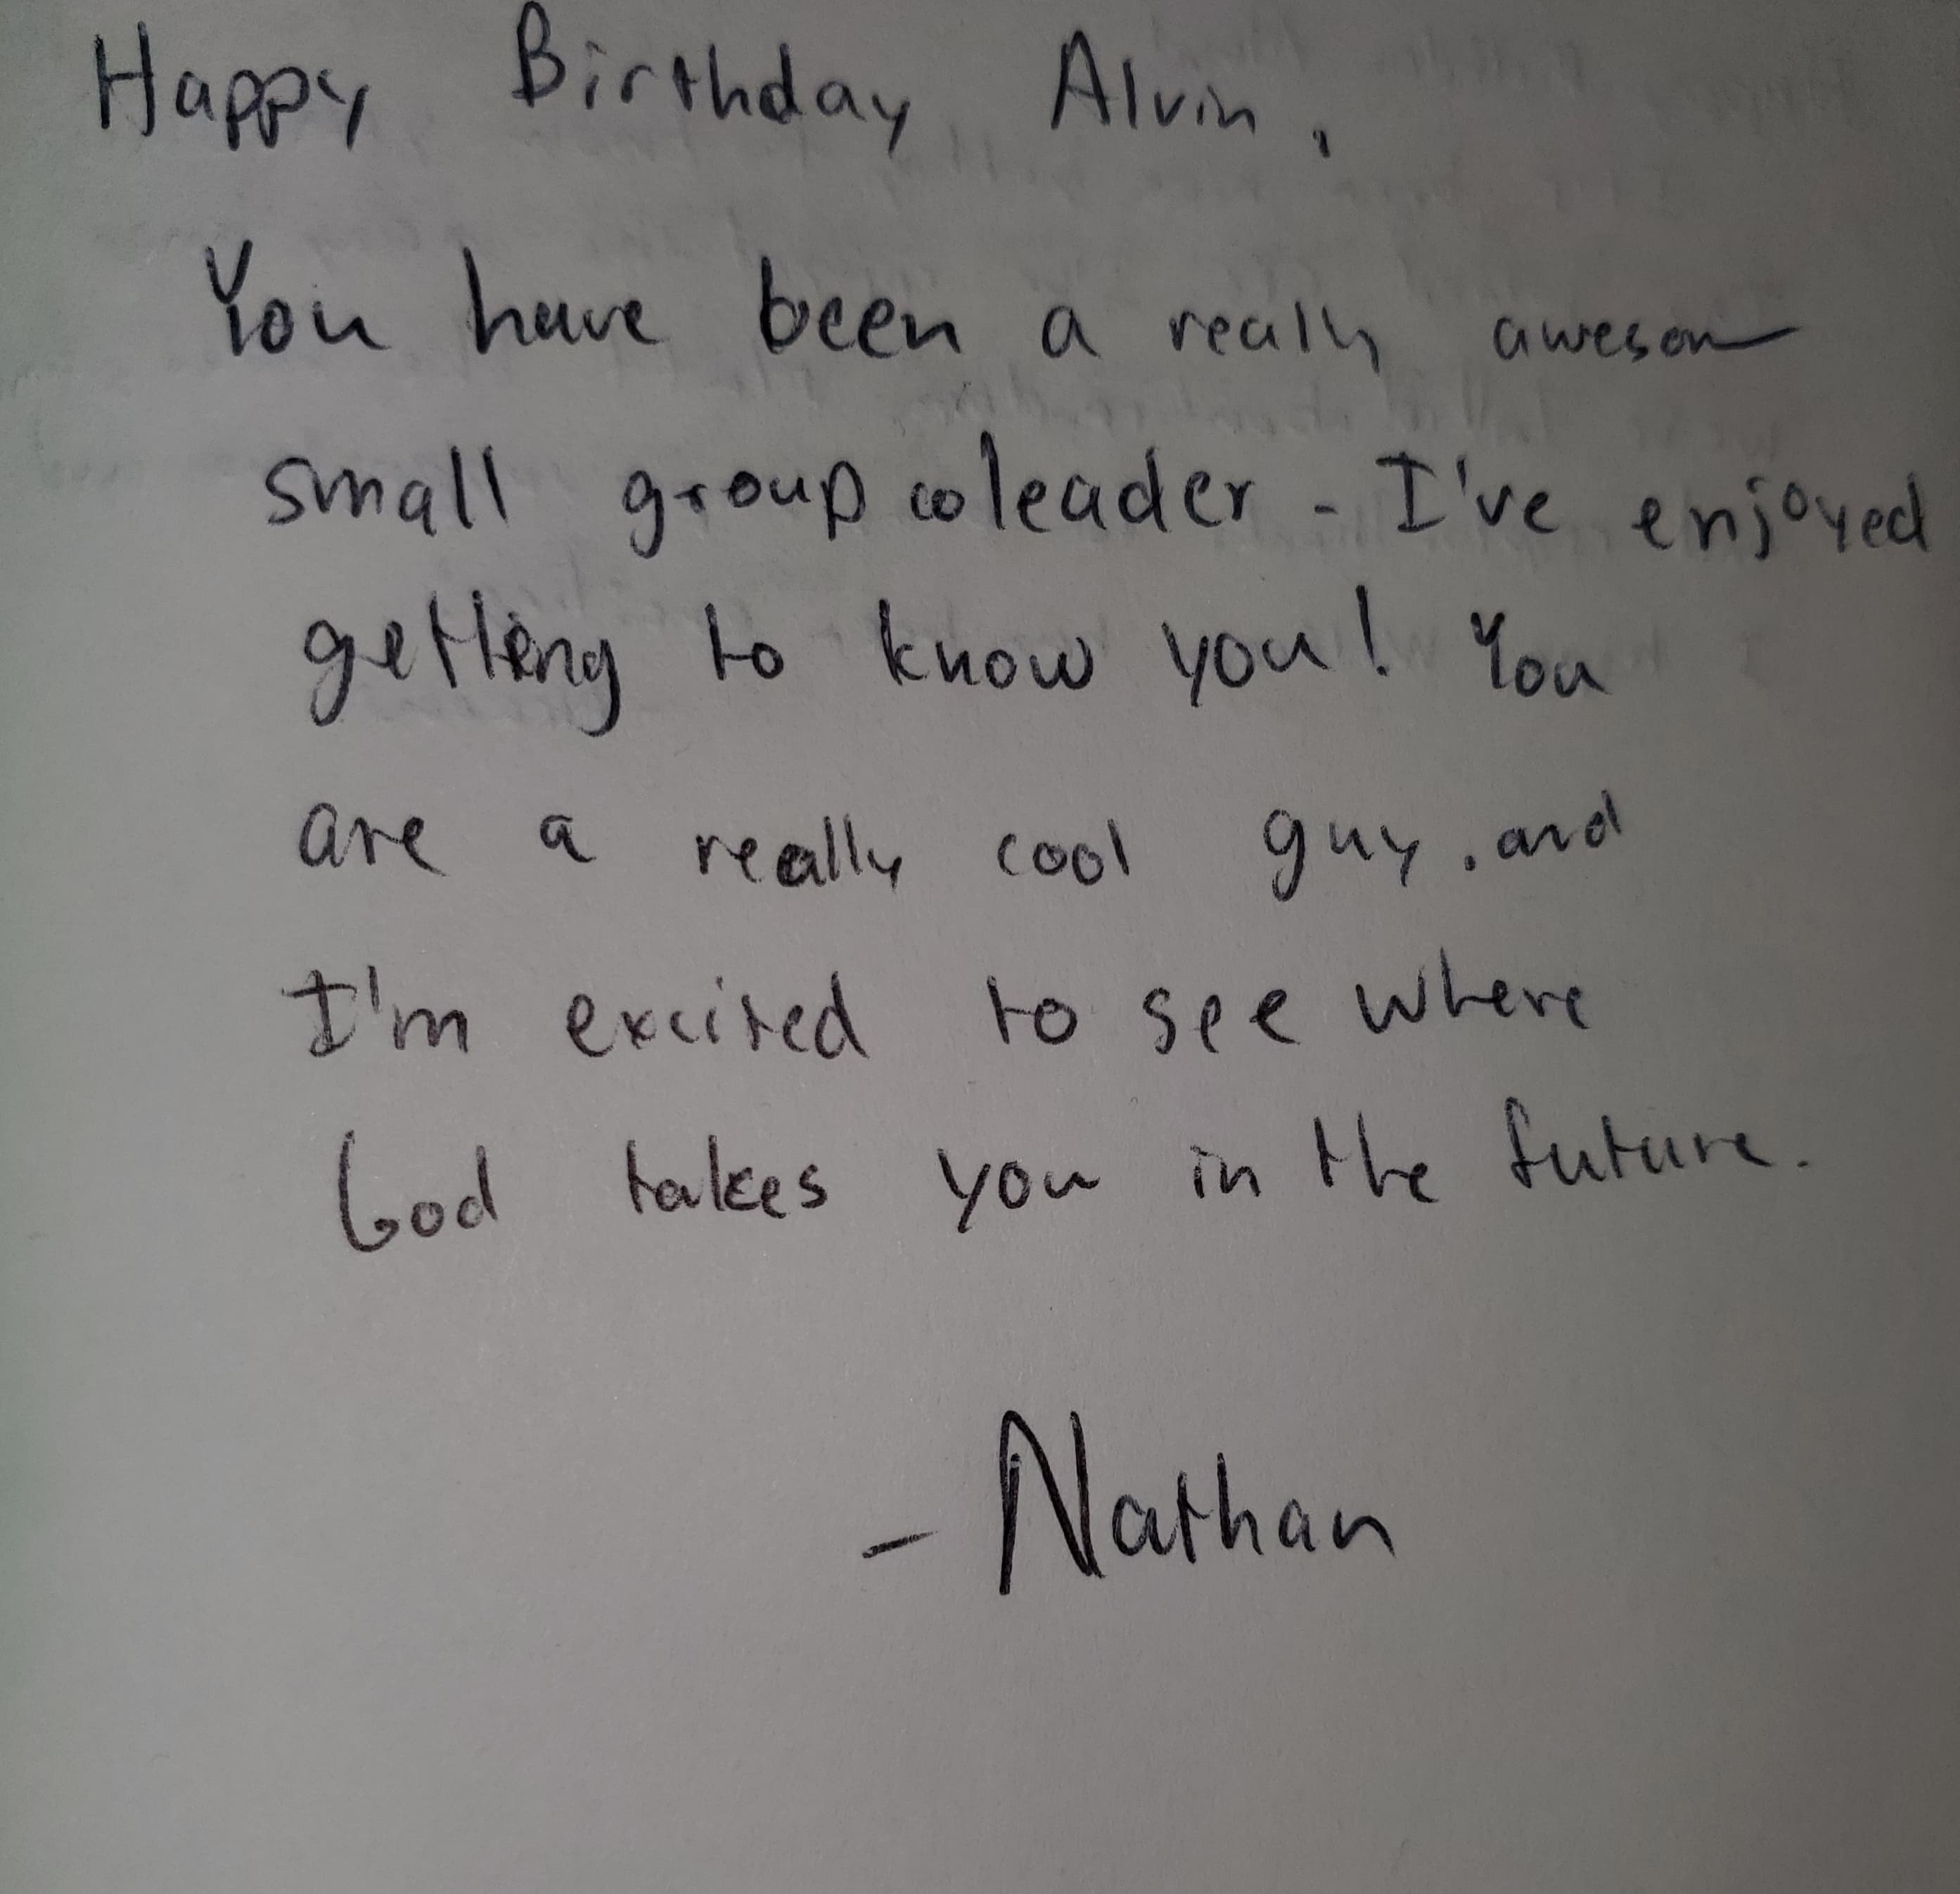 Happy Birthday Alvin,
You have been a really awesome
small group coleader - I've enjoyed
getting to know you! You
are a really cool guy, and
I'm excited to see where
God takes you in the future.
- Nathan